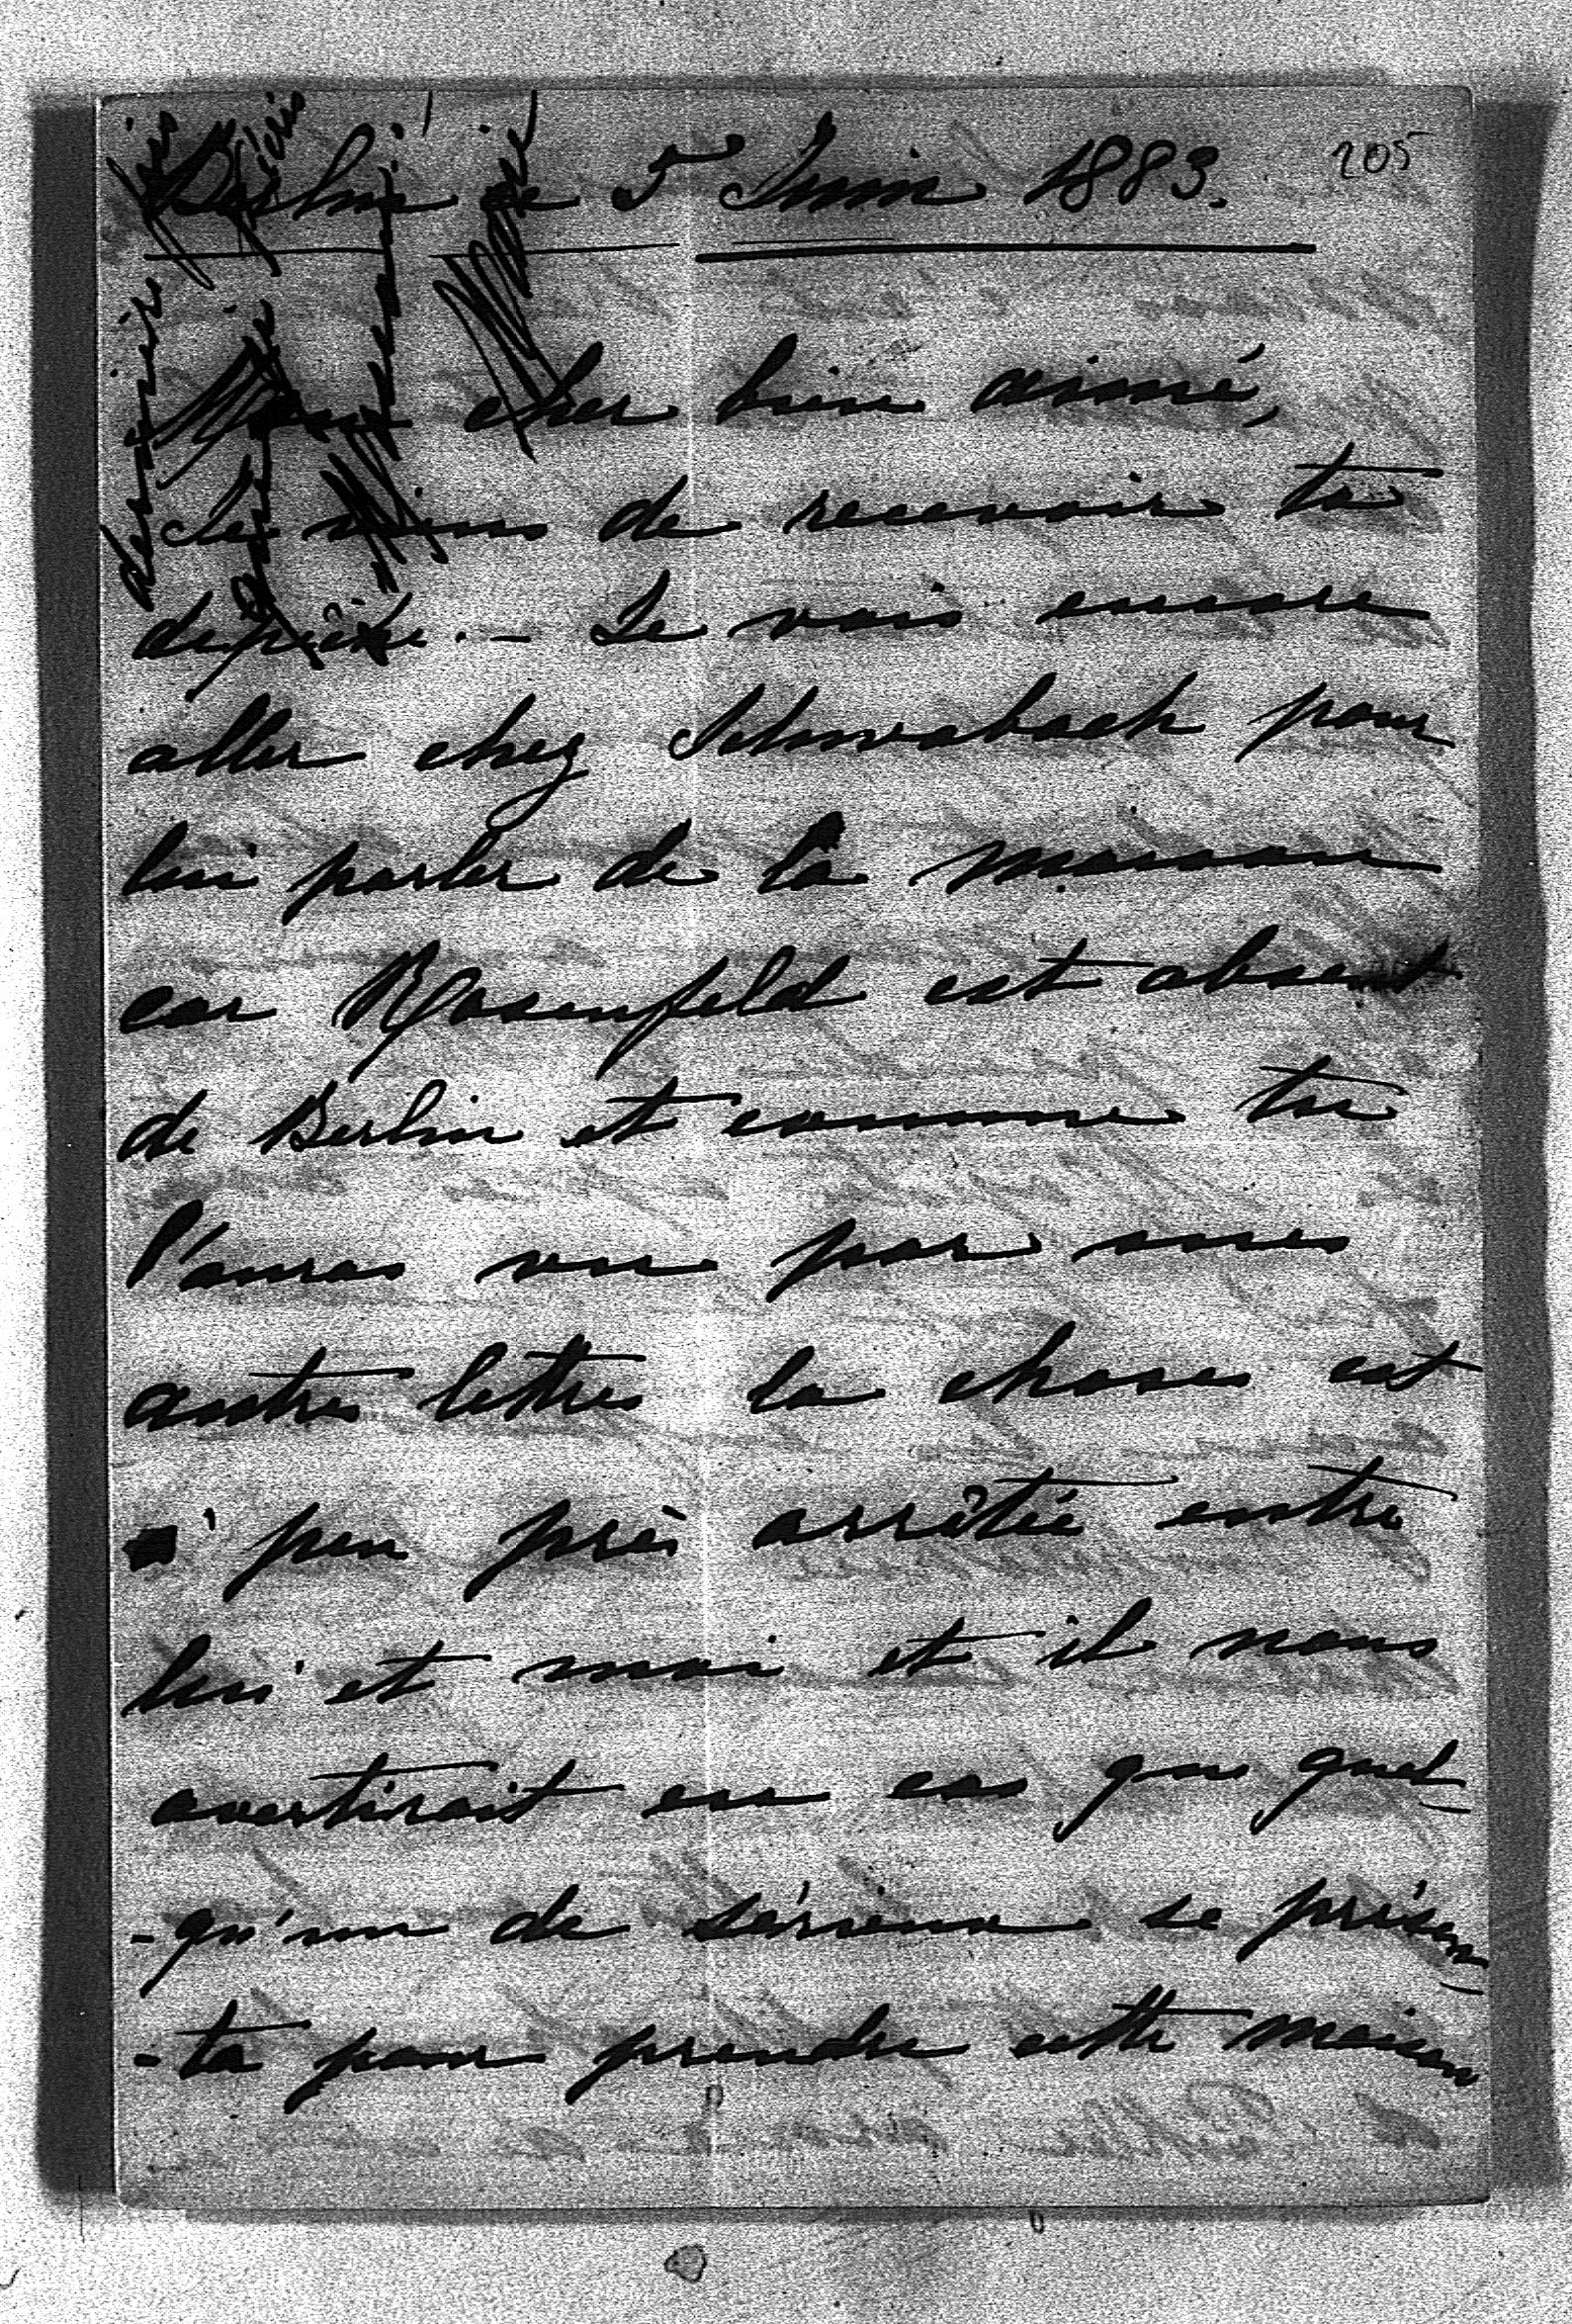 205
Berlin ce 5 Juin 1883.
Mon cher bien aimé,
Je viens de recevoir ta
depêche. – Je vais encore
aller chez Schwabach pour
lui parler de la maison
car Rosenfeld est absent
de Berlin et comme tu
l'auras vu par mes
autres lettres la chose est
à peu près arrêtée entre
lui et moi et il nous
avertirait en cas que quel-
-qu'un de sérieux se présen-
-ta pour prendre cette maison